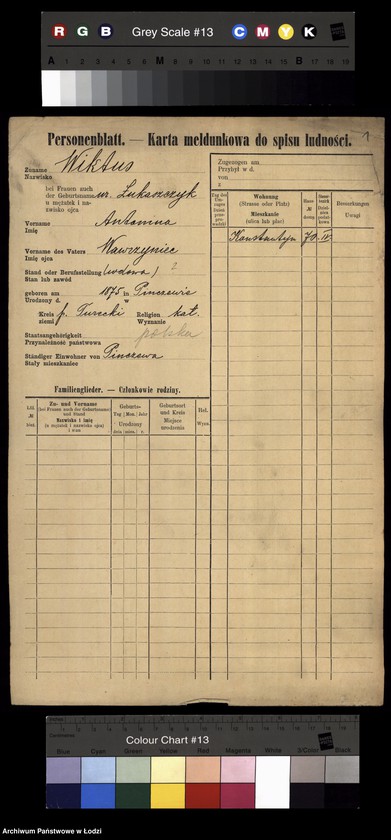 R G B Grey Scale #13 C M Y K
A 1 2 3 4 5 6 M 8 9 10 11 12 13 14 15 B 17 18 19
1
Personenblatt. — Karta meldunkowa do spisu ludności.
Zuname
Nazwisko
Wiktus
bei Frauen auch
der Geburtsname
u mężatek i na-
zwisko ojca
ur. Łukaszczyk
Vorname
Imię
Antonina
Vorname des Vaters
Imię ojca
Wawrzyniec
Stand oder Berufsstellung
Stan lub zawód
(wdowa) ?
geboren am 1875 in Pinczewie
Urodzony d. w
Kreis
ziemi
p. Turecki
Religion
Wyznanie
kat.
Staatsangehörigkeit
Przynależność państwowa
polska
Ständiger Einwohner von
Stały mieszkaniec
Pinczewa
Familienglieder. — Członkowie rodziny.
Zu- und Vorname
(bei Frauen auch der Geburtsname)
und Stand
Nazwisko i imię
(u mężatek i nazwisko ojca)
i stan
Geburts-
Tag Mon. Jahr
Urodzony
dnia mies. r.
Geburtsort
und Kreis
Miejsce
urodzenia
Rel.
Wyzn.
Zugezogen am
Przybył w d.
von
z
Wohnung
(Strasse oder Platz)
Mieszkanie
(ulica lub plac)
Haus
№
domu
Bemerkungen
Uwagi
Konstantyn 70. IV.
Colour Chart #13
Blue Cyan Green Yellow Red Magenta White 3/Color Black
Archiwum Państwowe w Łodzi